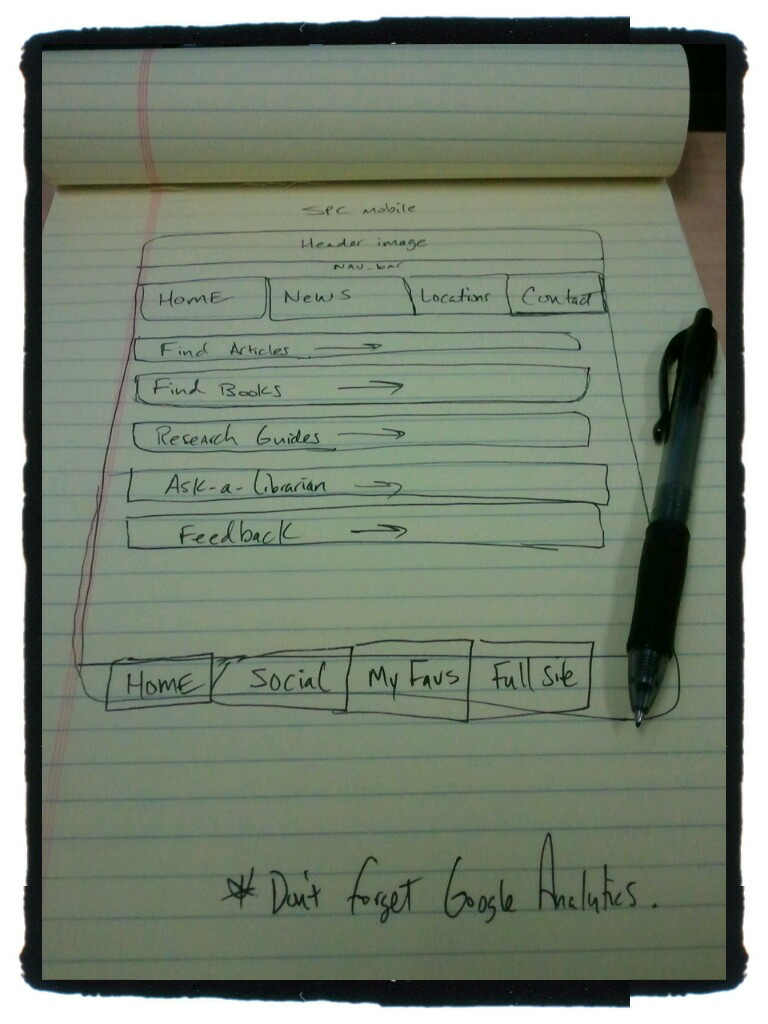 SPC mobile
Header image
NAV-bar
HOME NEWS Locations Contact
Find Articles →
Find Books →
Research Guides →
Ask-a-Librarian →
Feedback →
HOME Social My Favs Full Site
* Don't forget Google Analytics.